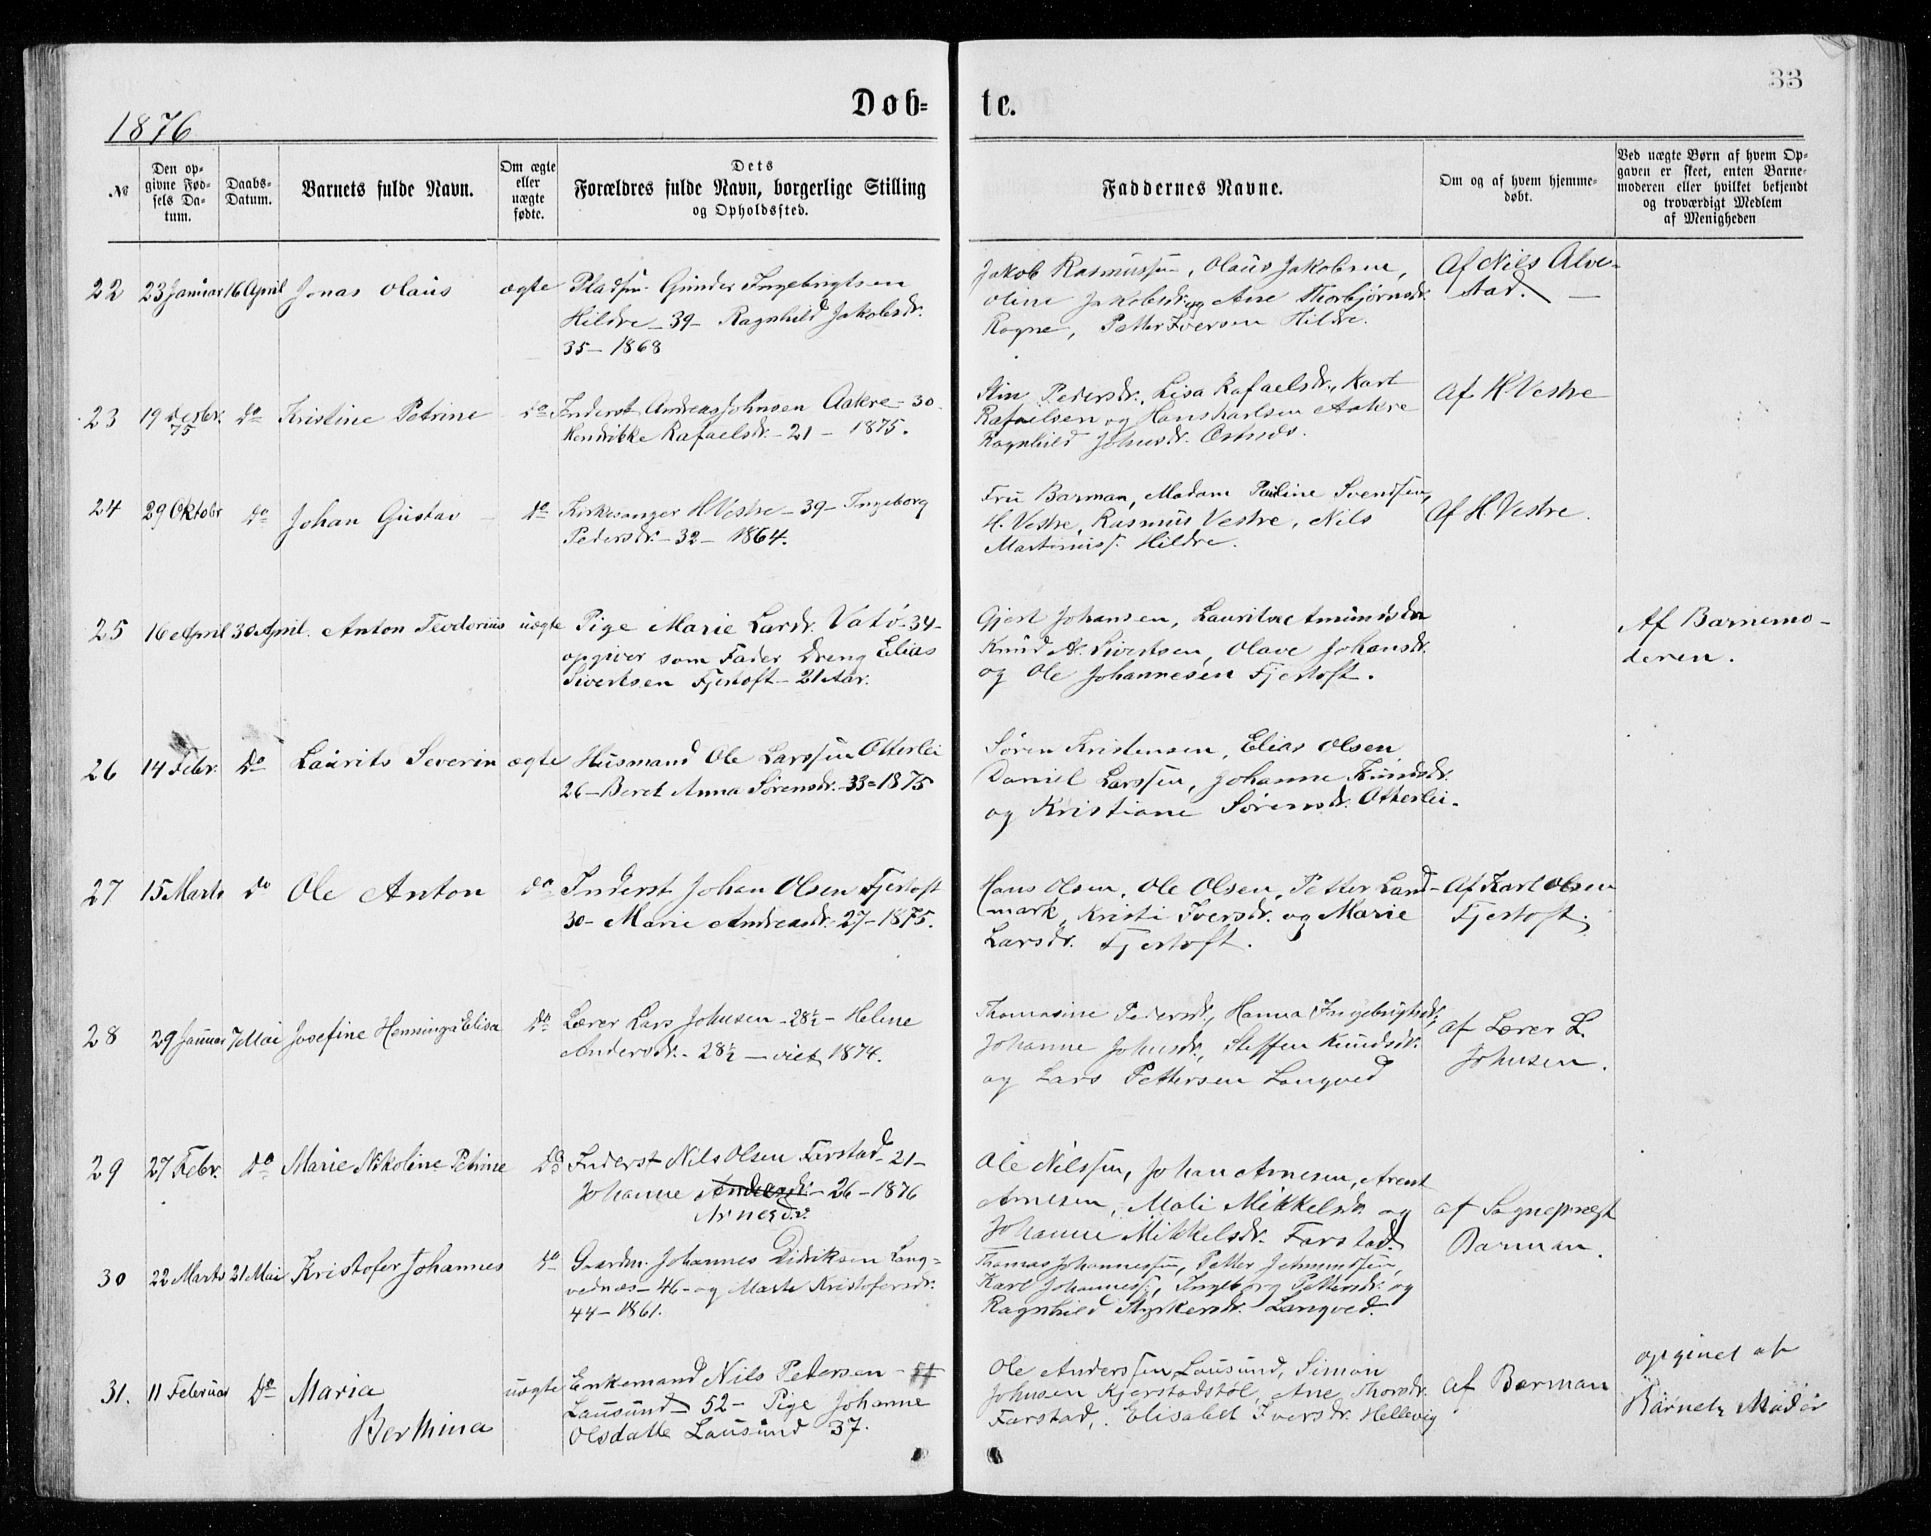 33
1876
Døb=
te.
№
Den op=
givne Fød=
sels Da=
tum.
Daabs=
Datum.
Barnets fulde Navn.
Om ægte
eller
uægte
fødte.
Dets
Forældres fulde Navn, borgerlige Stilling
og Opholdssted.
Faddernes Navne.
Om og af hvem hjemme=
døbt.
Ved uægte Børn af hvem Op=
gaven er skeet, enten Barne=
moderen eller hvilket bekjendt
og troværdigt Medlem
af Menigheden
22 23 Januar 16 April Jonas Olaus ægte
Pladsm. Gunder Ingebrigtsen
Hildre - 39 - Ragnhild Jakobsdr.
35 - 1868
Jakob Rasmussen, Olaus Jakobsen,
Oline Jakobsdr. og Ane Thorbjørnsdr.
Rogne, Petter Iversen Hildre.
Af Nils Alve-
stad. —
23 19 Desbr. 75 do Kristine Petrine do
Inderst Andreas Johnsen Aakre - 30
Hendrikke Rafaelsdr. - 21 - 1875.
Pedersdr., Lisa Rafaelsdr., Kart
Rafaelsen og Hans Karlsen Aakre
Ragnhild Johnsdr.
Af H. Vestre
24 29 Oktobr do Johan Gustav - do
Kirkesanger H. Vestre - 39 - Ingeborg
Pedersdr. - 32 - 1864.
Fru Barman, Madam Pauline Svendsen,
H. Vestre, Rasmus Vestre, Nils
Martinuss. Hildre.
Af H. Vestre.
25 16 April 30 April. Anton Teodorius uægte
Pige Marie Larsdr. Vatø - 34 -
opgiver som Fader Dreng Elias
Sivertsen Fjertoft - 21 Aar.
Gjert Johansen, Lauritse Amundsdr
Knud A. Sivertsen, Olave Johansdr.
og Ole Johannesen Fjertoft.
Af Barnemo-
deren.
26 14 Febr. do Laurits Severin ægte
Husmand Ole Larssen Otterlei
26 - Beret Anna Sørensdr. - 33 - 1875
Søren Kristensen, Elias Olsen,
Daniel Larssen, Johanne Knudsdr.
og Kristiane Sørensdr. Otterlei.
27 15 Marts do Ole Anton do
Inderst Johan Olsen Fjertoft
30 - Marie Andreasdr. - 27 - 1875.
Hans Olsen, Ole Olsen, Petter Land-
mark, Kristi Iversdr. og Marie
Larsdr. Fjertoft.
Af Karl Olsen
Fjertoft.
28 29 Januar 7 Mai Josefine Henninga Elisa do
Lærer Lars Johnsen - 28½ - Helene
Andersdr. - 28½ - viet 1874.
Thomasine Pedersdr., Hanna Ingebrigtsdr,
Johanne Johnsdr., Steffen Knudsdr.
og Lars Pettersen Longved
af Lærer L.
Johnsen.
29 27 Febr. do Marie Nikoline Petrine do
Inderst Nils Olsen Farstad - 21 -
Johanne Andersdr. - 26 - 1876
Arnesdr.
Ole Nilssen, Johan Arnesen, Arent
Arnesen, Mali Mikkelsdr. og
Johanne Mikkelsdr. Farstad.
af Sogneprest
Barman.
30 22 Marts 21 Mai Kristofer Johannes do
Gaardm. Johannes Didriksen Lang=
vednæs - 46 - og Marte Kristofersdr.
44 - 1861.
Thomas Johannessen, Petter Jetmundsen,
Karl Johanness., Ingeborg Pettersdr. og
Ragnhild Styrkersdr. Langved.
31. 11 Februar do Maria
Berthina
uægte
Enkemand Nils Petersen -
Lausund - 52 - Pige Johanne
Olsdatte Lausund 37.
Ole Anderssen Lausund, Simon
Johnsen Kjerstadstøl, Ane Thorsdr.
Farstad, Elisabet Iversdr. Hellevig
af Barman
opgivet af
Barnets Moder